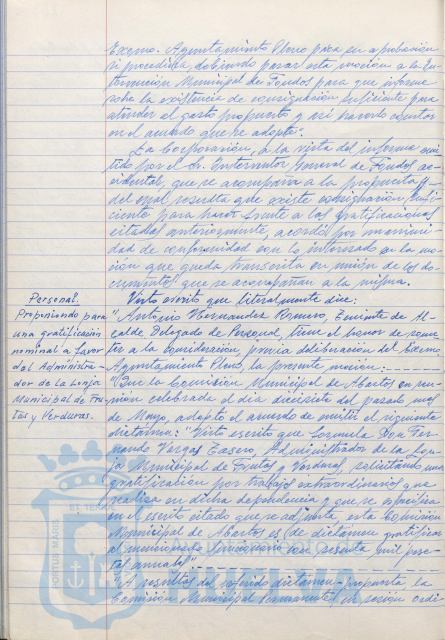 Excmo. Ayuntamiento Pleno para su aprobación
si procediera, debiendo pasar esta moción a la In-
tervención Municipal de Fondos para que informe
sobre la existencia de consignación suficiente para
atender el gasto propuesto y así hacerlo constar
en el acuerdo que se adopte".
La Corporación, a la vista del informe emi-
tido por el Sr. Interventor General de Fondos ac-
cidental, que se acompaña a la propuesta y
del cual resulta que existe consignación sufi-
ciente para hacer frente a las gratificaciones
citadas anteriormente, acordó por unanimi-
dad de conformidad con lo interesado en la mo-
ción que queda transcrita en unión de los do-
cumentos que se acompañan a la misma.
Personal.
Proponiendo para
una gratificación
nominal a favor
del Administra-
dor de la Lonja
Municipal de Fru-
tas y Verduras.
Visto escrito que literalmente dice:
"Antonio Hernandez Romero, Teniente de Al-
calde Delegado de Personal, tiene el honor de some-
ter a la consideración previa deliberación del Excmo.
Ayuntamiento Pleno, la presente moción:
"Que la Comisión Municipal de Abastos en reu-
nión celebrada el día diecisiete del pasado mes
de Mayo, adoptó el acuerdo de emitir el siguiente
dictamen: "Visto escrito que formula Don Fer-
nando Vargas Casero, Administrador de la Lon-
ja Municipal de Frutas y Verduras, solicitando una
gratificación por trabajos extraordinarios que
realiza en dicha dependencia y que se especifica
en el escrito citado que se adjunta, esta Comisión
Municipal de Abastos es de dictamen gratificar
al mencionado funcionario con sesenta mil pese-
tas anuales".
"A resultas del referido dictamen-propuesta la
Comisión Municipal Permanente, en sesión ordi-
PORTUS MARIS
ET TERRAE
HUELVA